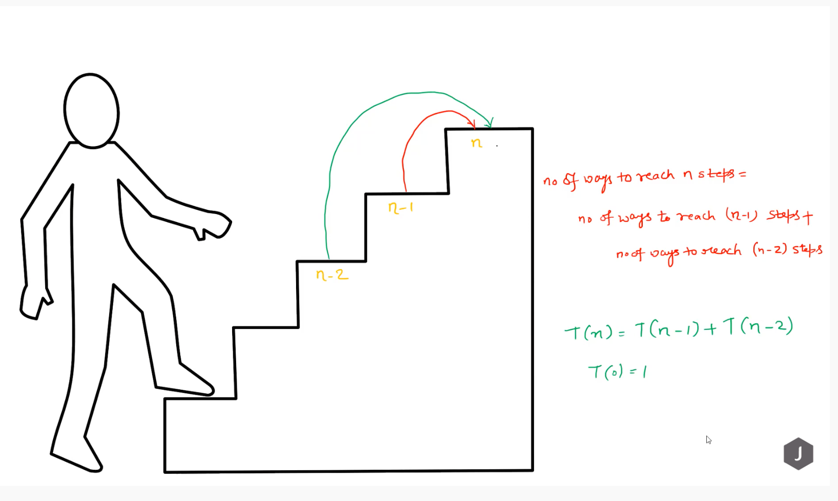 n
n-1
n-2
no of ways to reach n steps =
no of ways to reach (n-1) steps +
no of ways to reach (n-2) steps
T(n) = T(n-1) + T(n-2)
T(0) = 1
J